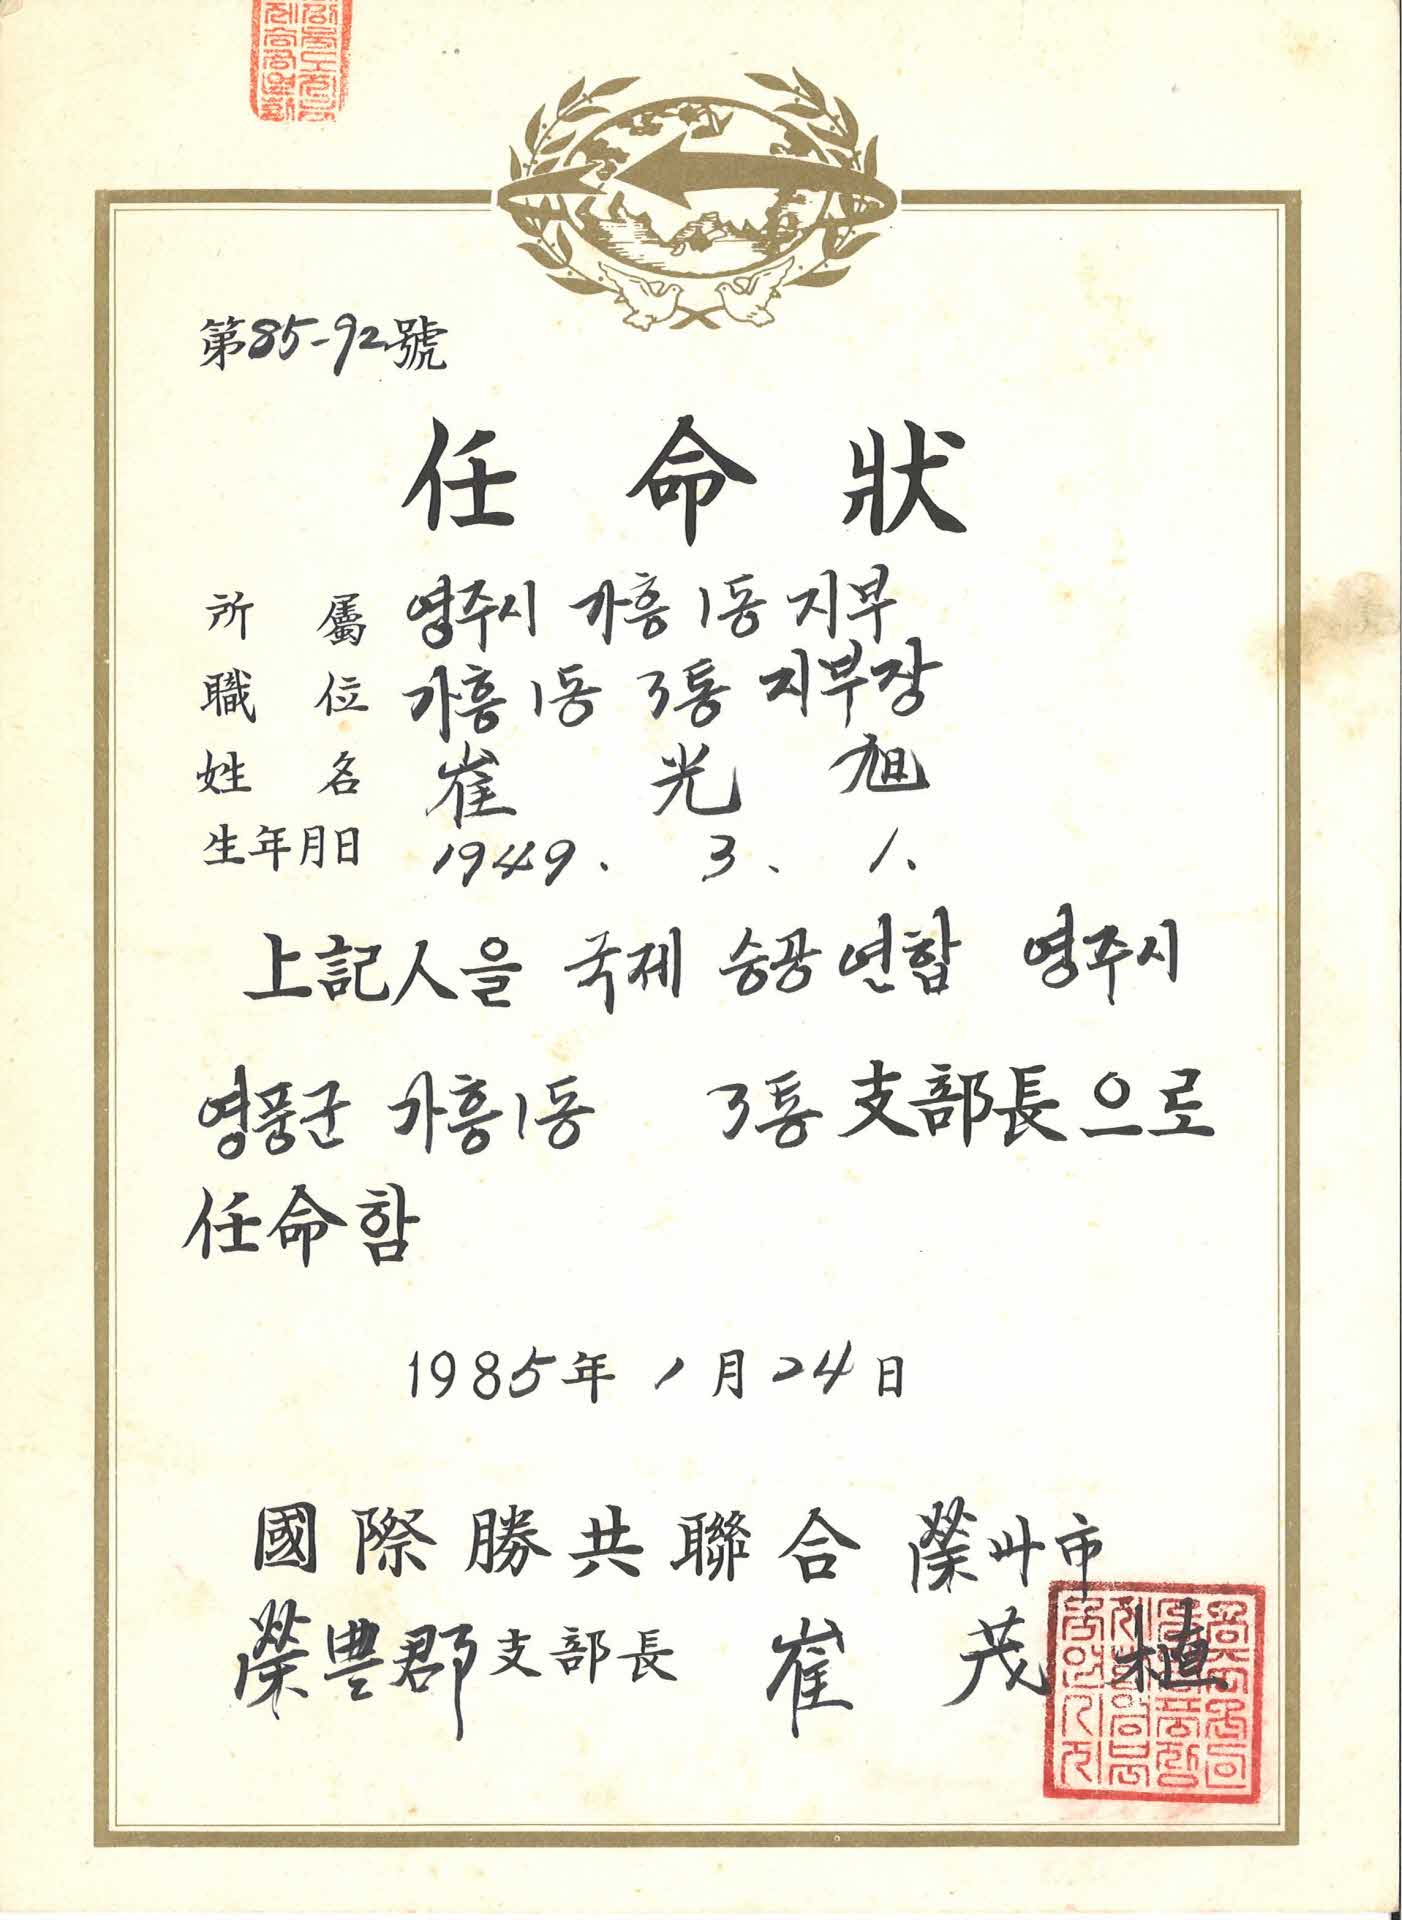 第85-92號
任命狀
所屬 영주시 가흥1동 지부
職位 가흥1동 3통 지부장
姓名 崔光旭
生年月日 1949. 3. 1.
上記人을 국제 승공 연합 영주시
영풍군 가흥1동 3통 支部長으로
任命함
1985年 1月 24日
國際勝共聯合 榮州市
榮豊郡 支部長 崔茂植